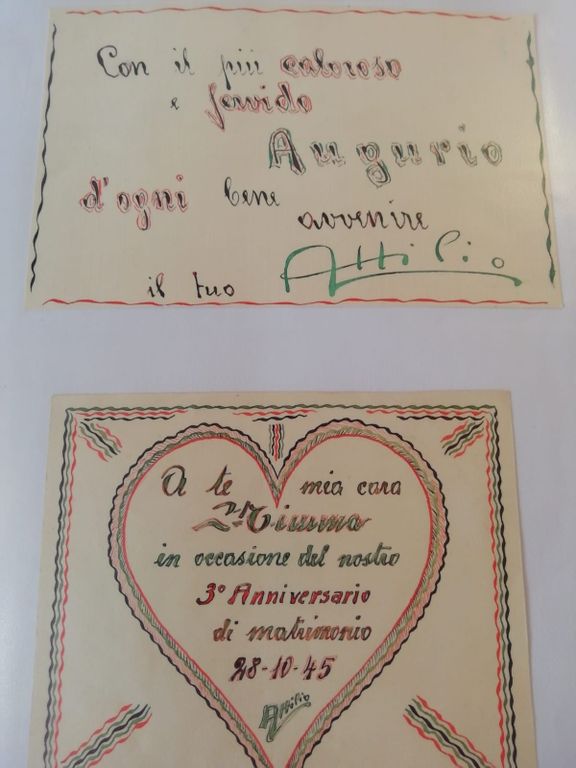 Con il più caloroso
e fervido
Augurio
d'ogni bene
avvenire
il tuo Attilio
A te mia cara
in occasione del nostro
3° Anniversario
di matrimonio
28-10-45
Attilio